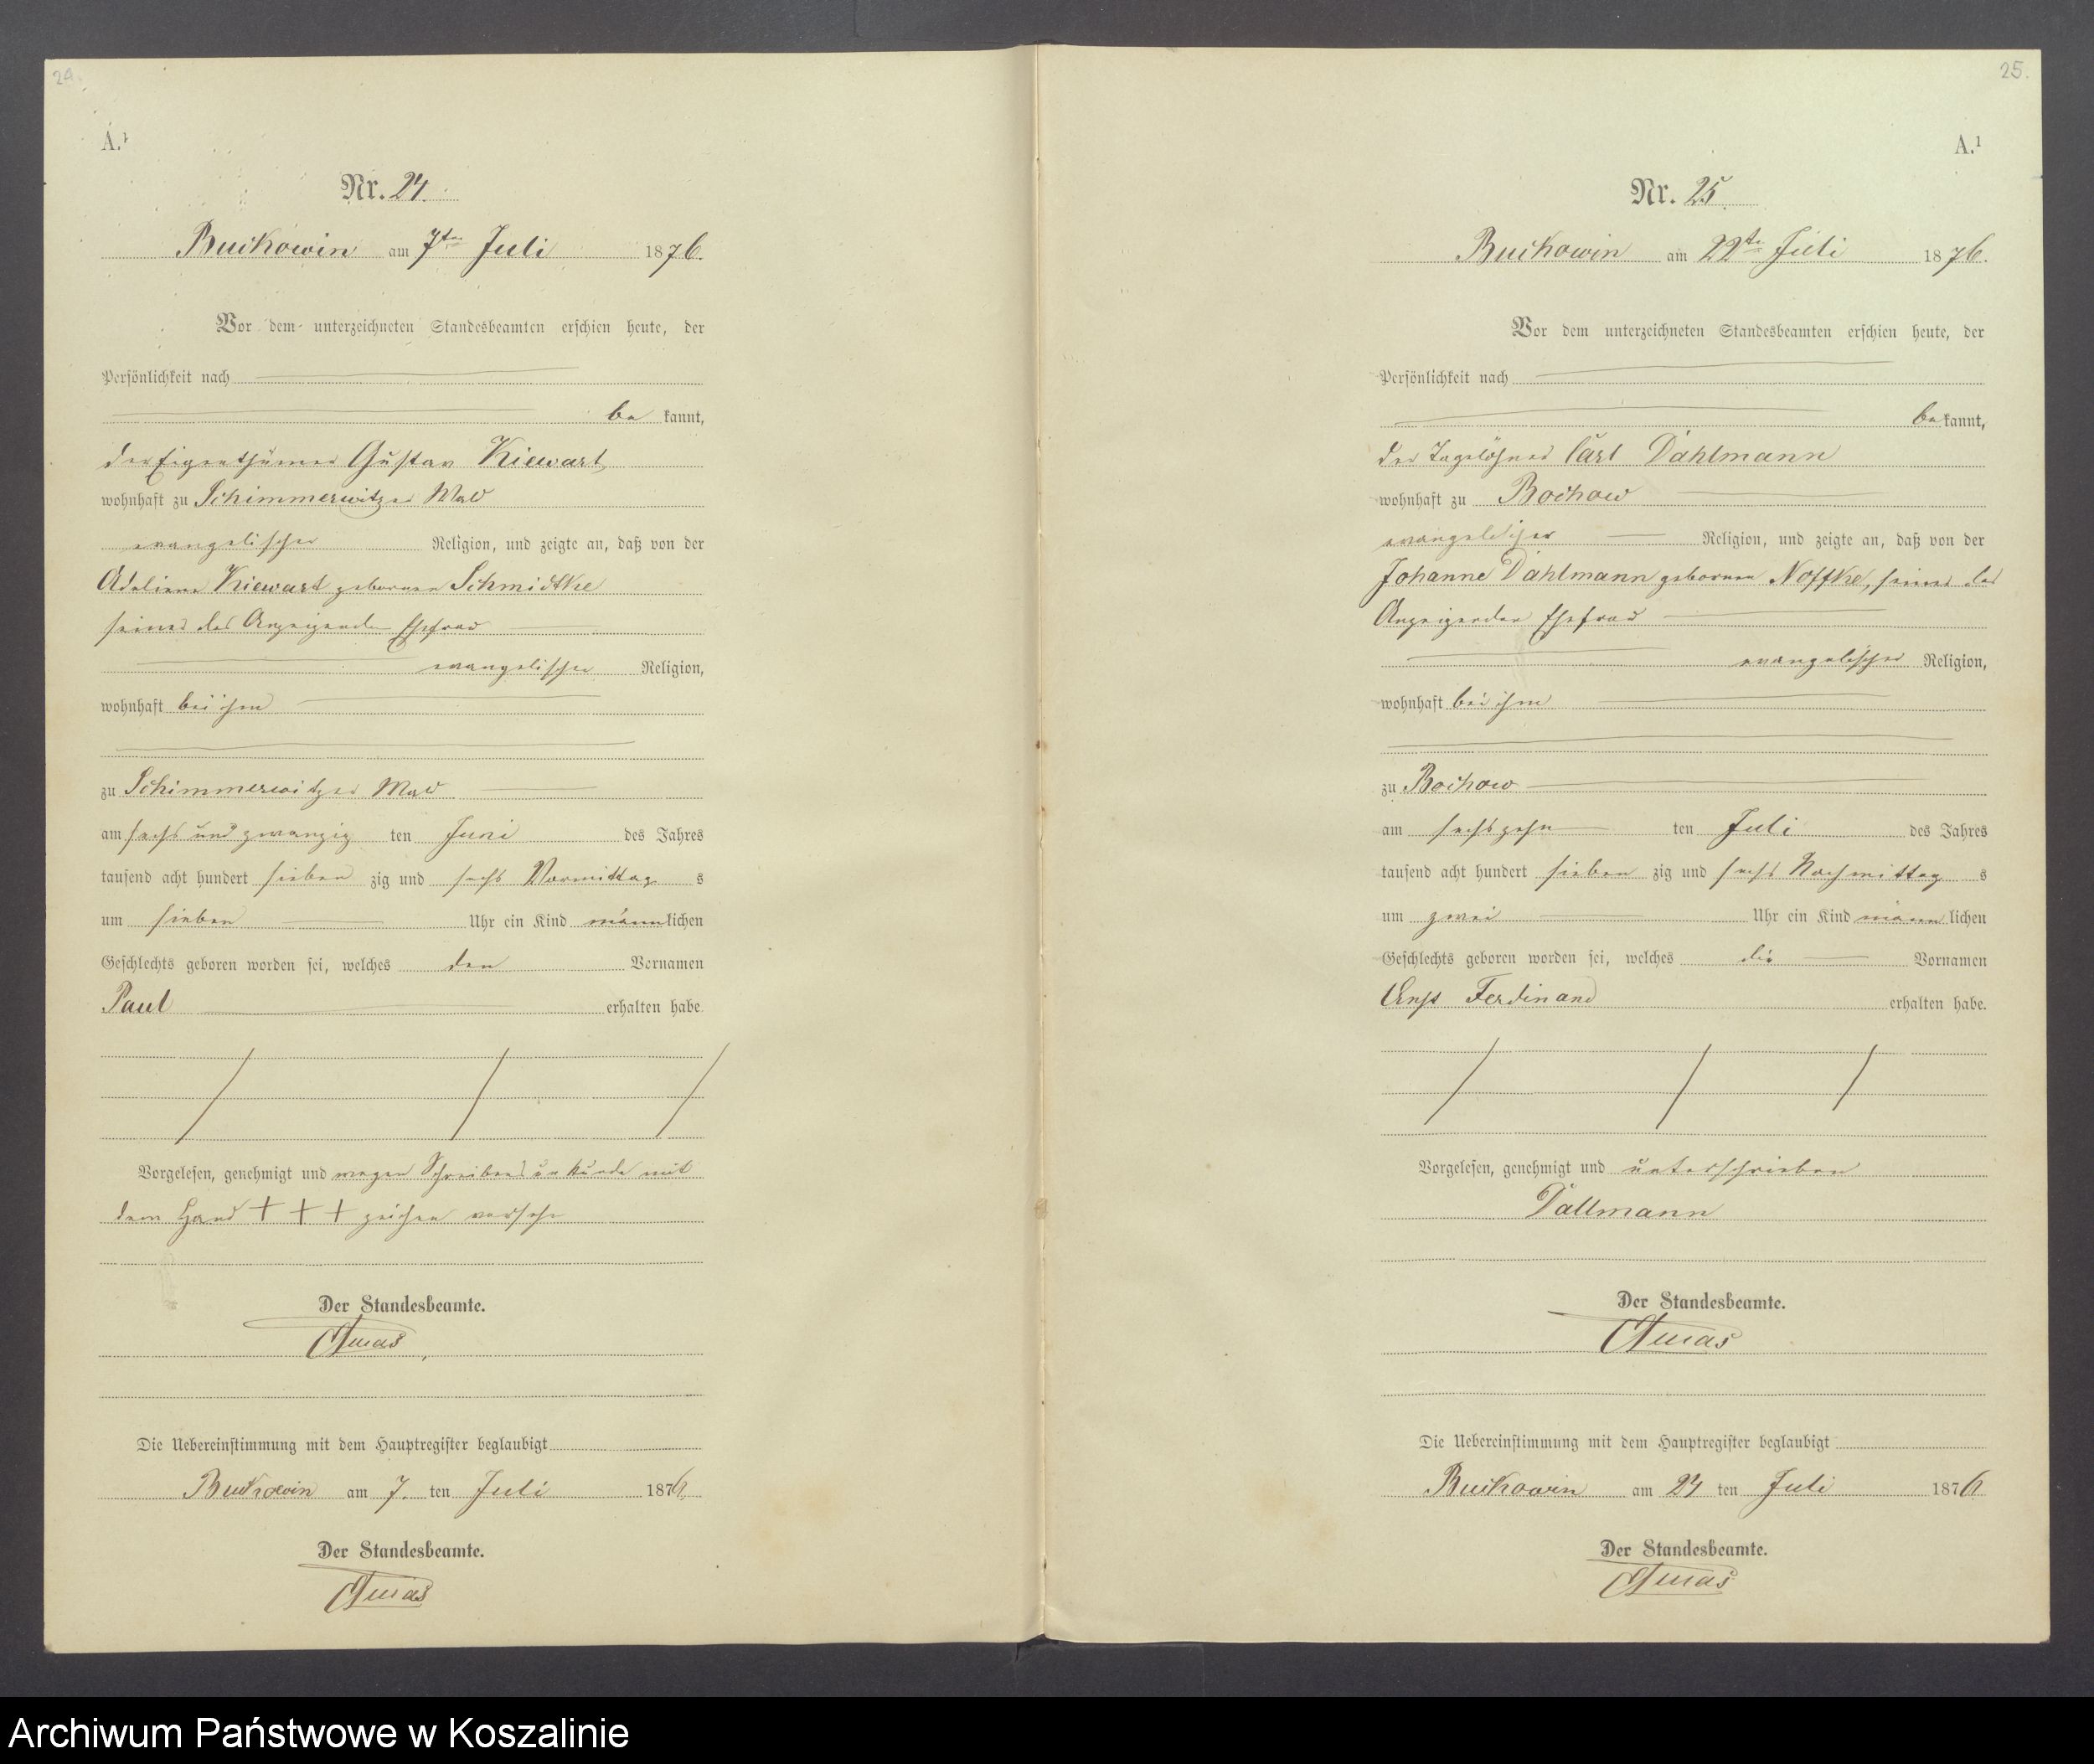 24.
A.¹
Nr. 24.
Buckowin am 7ten Juli 1876.
Vor dem unterzeichneten Standesbeamten erschien heute, der
Persönlichkeit nach
be kannt,
der Eigenthümer Gustav Kiewart,
wohnhaft zu Schimmerwitzer
evangelischer Religion, und zeigte an, daß von der
Adeline Kiewart geborenen Schmidtke
seiner des Anzeigenden Ehefrau
evangelischer Religion,
wohnhaft bei ihm
zu Schimmerwitzer
am sechs und zwanzig ten Juni des Jahres
tausend acht hundert sieben zig und sechs Vormittag s
um sieben Uhr ein Kind männ lichen
Geschlechts geboren worden sei, welches den Vornamen
Paul erhalten habe.
Vorgelesen, genehmigt und wegen Schreibensunkunde mit
dem Hand + + + zeichen versehn
Der Standesbeamte.
Die Uebereinstimmung mit dem Hauptregister beglaubigt
Buckowin am 7. ten Juli 1876
Der Standesbeamte.
25.
A.¹
Nr. 25
Buckowin am 22te Juli 1876.
Vor dem unterzeichneten Standesbeamten erschien heute, der
Persönlichkeit nach
be kannt,
der Tagelöhner Carl Dahlmann
wohnhaft zu Bochow
evangelischer Religion, und zeigte an, daß von der
Johanne Dahlmann geborenen Noffke, seiner des
Anzeigenden Ehefrau
evangelischer Religion,
wohnhaft bei ihm
zu Bochow
am sechszehn ten Juli des Jahres
tausend acht hundert sieben zig und sechs Nachmittag s
um zwei Uhr ein Kind männ lichen
Geschlechts geboren worden sei, welches die Vornamen
Ernst Ferdinand erhalten habe.
Vorgelesen, genehmigt und unterschrieben
Dallmann
Der Standesbeamte.
Die Uebereinstimmung mit dem Hauptregister beglaubigt
Buckowin am 24 ten Juli 1876
Der Standesbeamte.
Archiwum Państwowe w Koszalinie